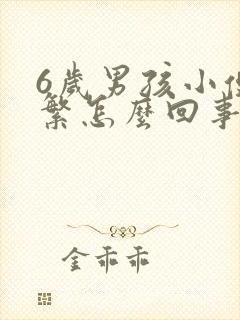 6歲男孩小便
繁怎麼回事
金乖乖